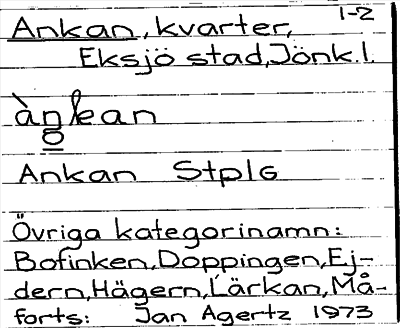 1-2
Ankan, kvarter,
Eksjö stad, Jönk.l.
àn̥kan
Ankan StplG
Övriga kategorinamn:
Bofinken, Doppingen, Ej-
dern, Hägern, Lärkan, Må-
forts: Jan Agertz 1973